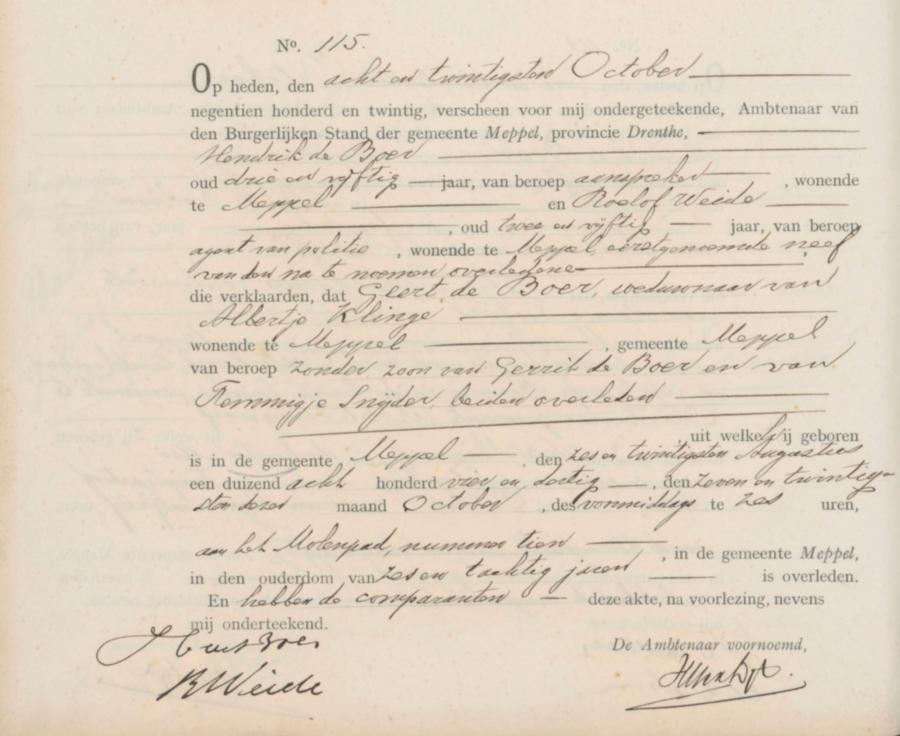 No. 115.
Op heden, den acht en twintigsten October
negentien honderd en twintig, verscheen voor mij ondergeteekende, Ambtenaar van
den Burgerlijken Stand der gemeente Meppel, provincie Drenthe,
Hendrik de Boer
oud drie en vijftig jaar, van beroep aanspreker, wonende
te Meppel en Roelof Weide
, oud twee en vijftig jaar, van beroep
agent van politie, wonende te Meppel, eerstgenoemde neef
van den na te noemen overledene
die verklaarden, dat Geert de Boer, weduwnaar van
Albertje Klinge
wonende te Meppel, gemeente Meppel
van beroep zonder zoon van Gerrit de Boer en van
Femmigje Snijder, beiden overleden
uit welke hij geboren
is in de gemeente Meppel, den zes en twintigsten Augustus
een duizend acht honderd vier en dertig, den zeven en twintig-
sten dezer maand October, des voormiddags te zes uren,
aan het Molenpad, nummer tien, in de gemeente Meppel,
in den ouderdom van zes en tachtig jaren is overleden.
En hebben de comparanten deze akte, na voorlezing, nevens
mij onderteekend.
H de Boer
De Ambtenaar voornoemd,
R Weide